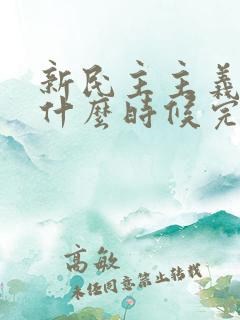 新民主主義
什麼時候完
高敏
未经同意禁止转载